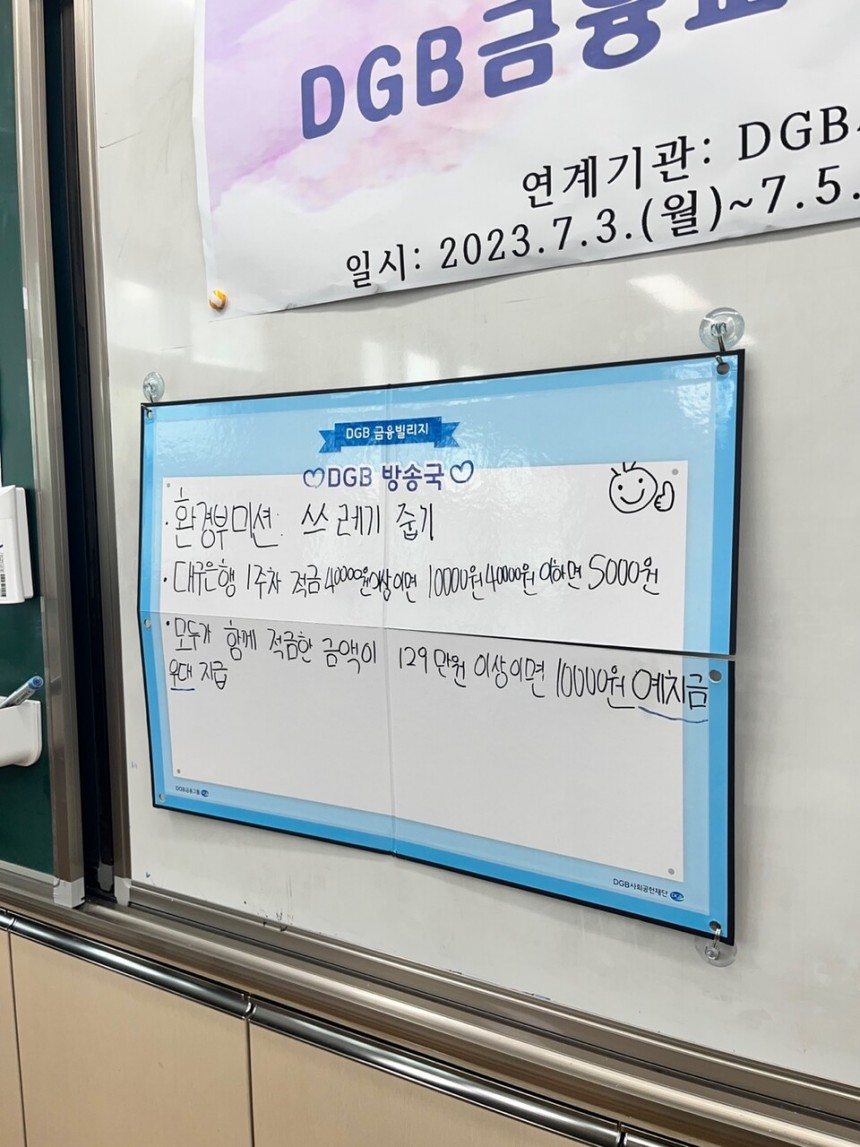 DGB금융교
연계기관: DGB
일시: 2023.7.3.(월)~7.5.
DGB 금융빌리지
♡DGB 방송국♡
· 환경부미션: 쓰레기 줍기
· 대구은행 1주차 적금 40000원이상이면 10000원 40000원 이하면 5000원
· 모두가 함께 적금한 금액이 129만원 이상이면 10000원 예치금
우대 지급
DGB금융그룹
DGB사회공헌재단